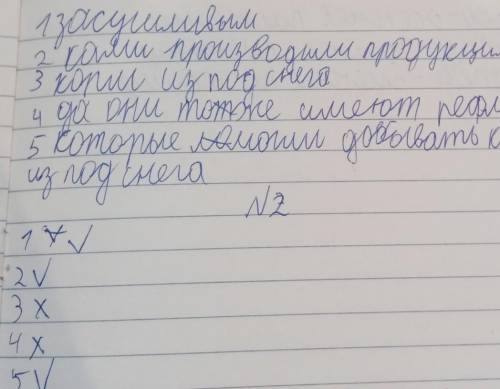 1 засушливым
2 кони производили продукци
3 корм из под снега
4 да они тоже имеют рефл
5 которые могли добывать к
из под снега
№2
1 ✓
2 V
3 x
4 x
5 V